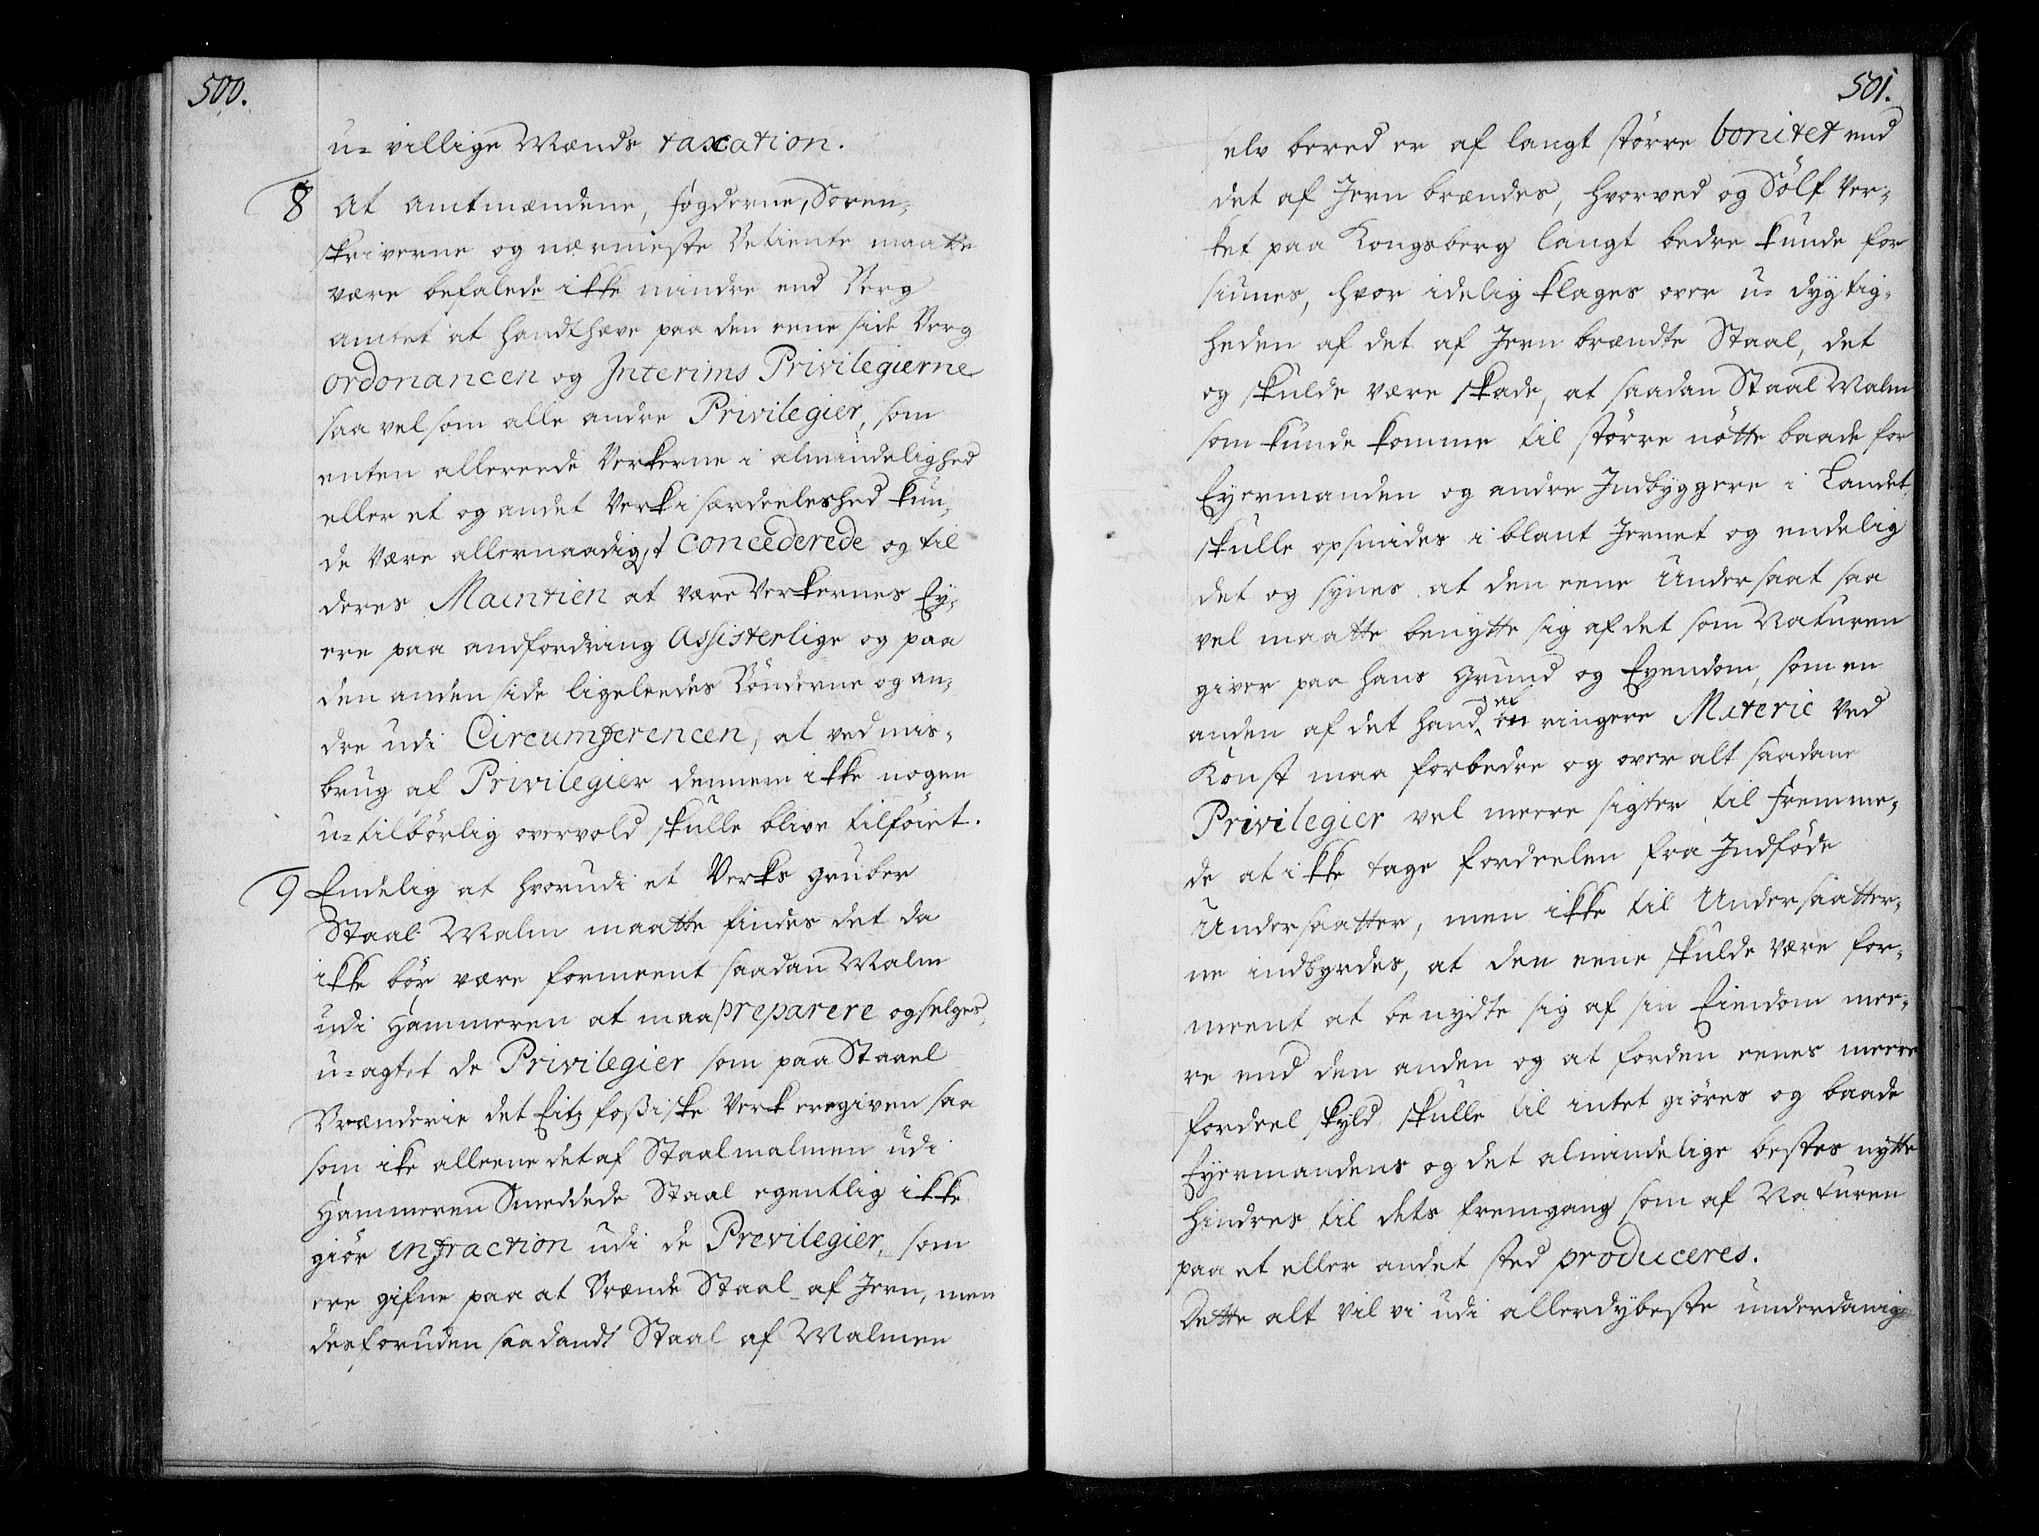 500.
u= villige Mænds taxation.
8 At Amtmændene, fogderne, Soren-
skriverne og nærmeste Betiente maatte
være befalede ikke mindre end Berg
amtet at handthæve paa den eene side Berg
Ordonancen og Interims Privilegierne
saa vel som alle andre Privilegier, som
enten allereede Verkerne i almindelighed
eller et og andet Verk i særdeeleshed kun-
de være allernaadigst concederede og til
deres Maintien at være Verkernes Ey-
ere paa andfordring Assisterlige og paa
den anden side ligeleedes Bønderne og an-
dre udi Circumferencen, at ved mis-
brug af Privilegier dennem ikke nogen
u=tilbörlig overvold skulle blive tilföiet.
9 Endelig at hvorudi et Verks gruber
Staal Malm maatte findes det da
ikke bör være formeent saadan Malm
udi Hammeren at maa preparere og selges,
u=agtet de Privilegier som paa Staael
Brænderie det Eitz foßiske Verk ere given saa
som ike alleene det af Staalmalmen udi
Hammeren Smeddede Staal egentlig ikke
giör infraction udi de Previlegier, som
ere gifne paa at Brænde Staal af Jern, men
desforuden saadandt Staal af Malmen
501.
selv bered er af langt större bonitet end
det af Jern brændes, hvorved og Sölf Ver-
ket paa Kongsberg langt bedre kunde for
siunes, hvor idelig klages over u= dygtig-
heden af det af Jern brændte Staal, det
og skulde være skade, at saadan Staal Malm
som kunde komme til större nötte baade for
Eyermanden og andre Indbyggere i Landet
skulle opsmides i blant Jernet og endelig
det og synes at den eene Undersaat saa
vel maatte benytte sig af det som Naturen
giver paa hans Grund og Eyendom, som en
anden af det hand af en ringere Materie ved
Konst maa forbedre og over alt saadane
Privilegier vel meere sigter til fremme-
de at ikke tage fordeelen fra Indföde
Undersaatter, men ikke til Undersaatter-
ne indbyrdes, at den eene skulde være for-
meent at benydte sig af sin Eiendom mee-
re end den anden og at for den eenes meere
fordeel skyld skulle til intet giöres og baade
Eyermandens og det almindelige bestes nytte
hindres til dets fremgang som af Naturen
paa et eller andet sted produceres.
Dette alt vil vi udi allerdybeste underdanig-